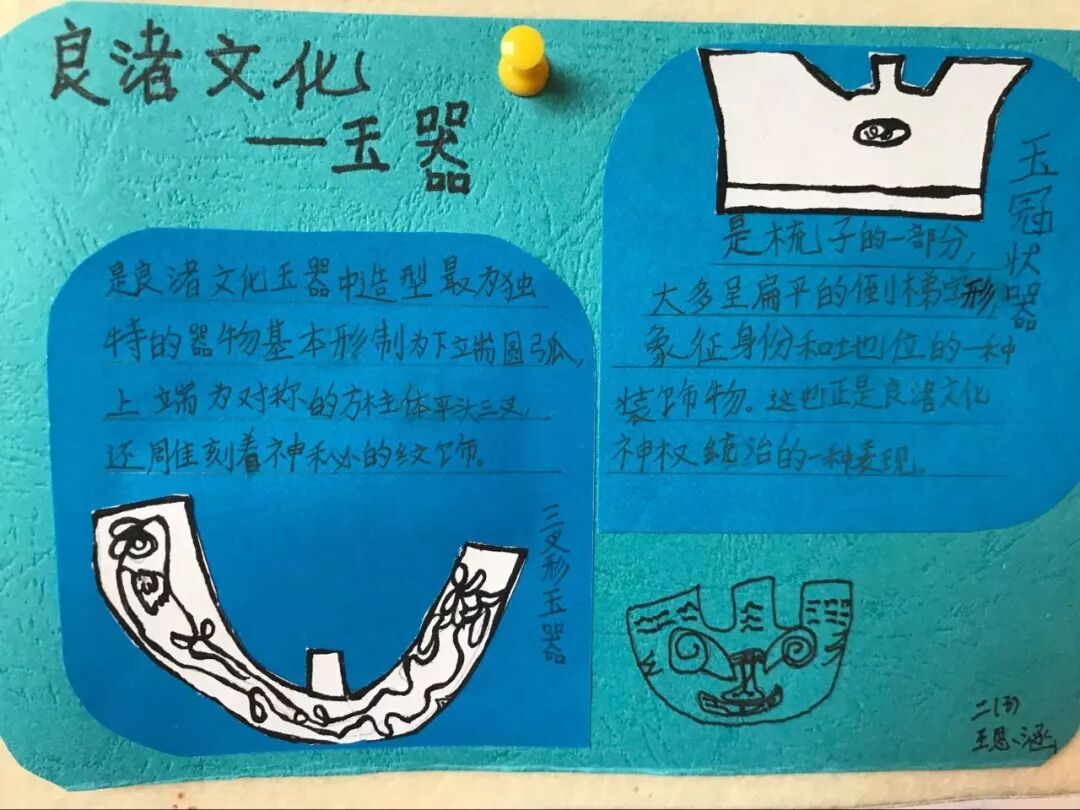 良渚文化
—玉器
是良渚文化玉器中造型最为独
特的器物基本形制为下端圆弧,
上端为对称的方柱主体平头三叉,
还雕刻着神秘的纹饰。
三叉形玉器
玉冠状器
是梳子的一部分,
大多呈扁平的倒梯字形,
象征身份和地位的一种
装饰物。这也正是良渚文化
神权统治的一种表现。
王思涵